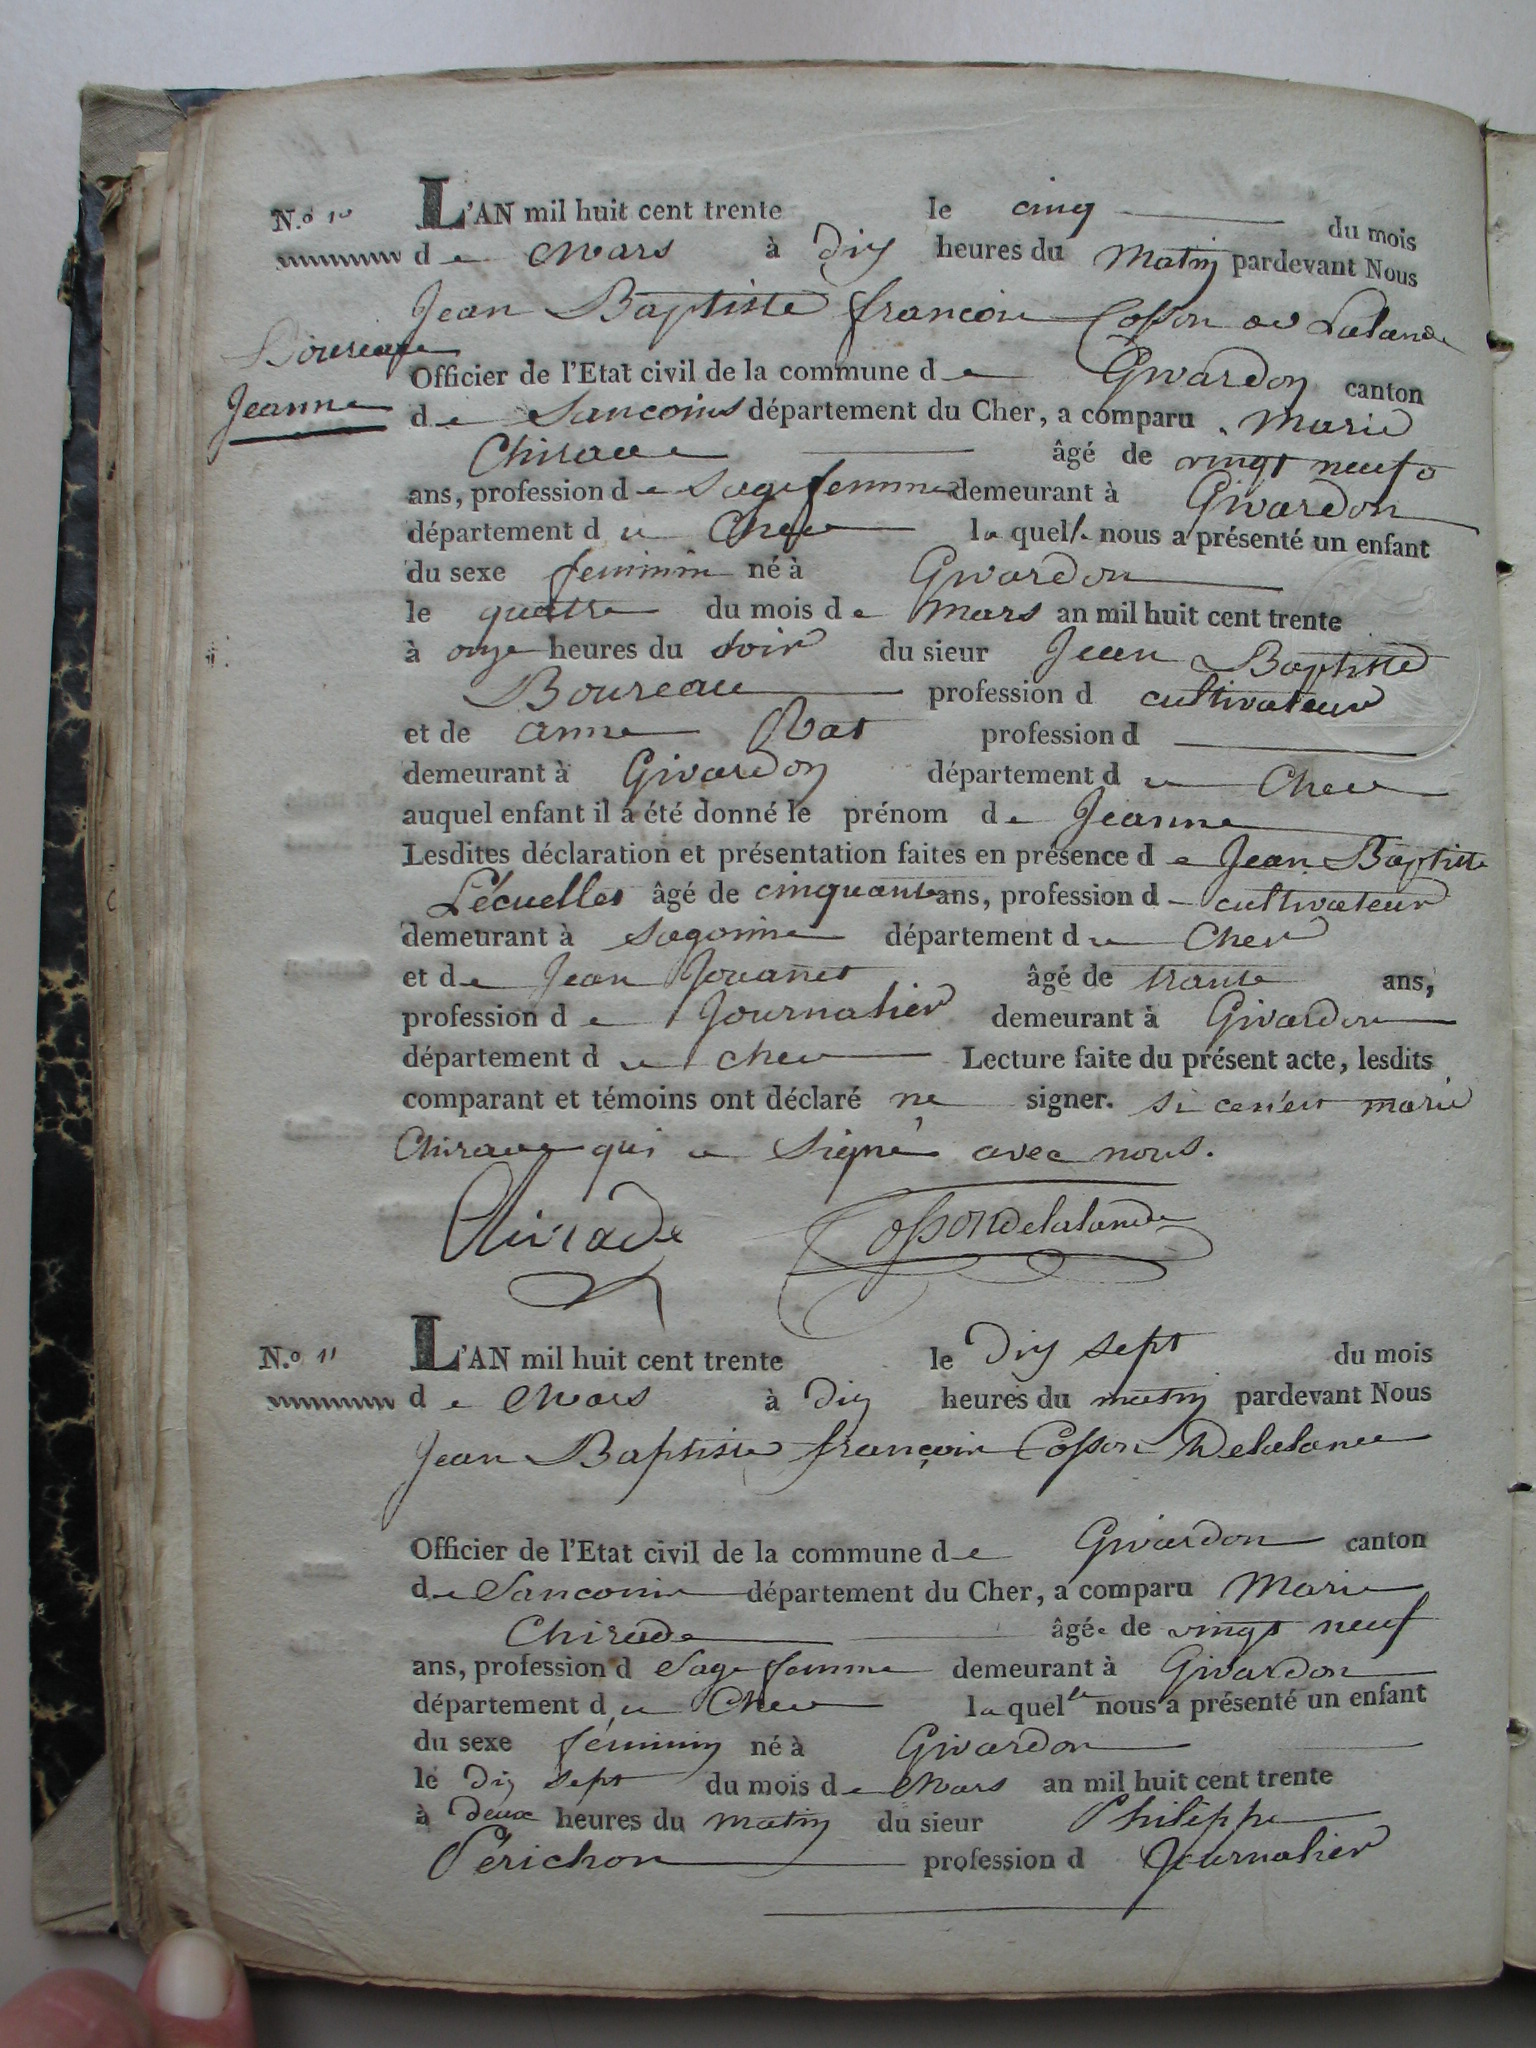 N.o 10 L'AN mil huit cent trente le cinq du mois
de Mars à dix heures du Matin pardevant Nous
Jean Baptiste francois Cosson de Lalande
Boureau
Jeanne
Officier de l'Etat civil de la commune de Givardon canton
de Sancoins département du Cher, a comparu Marie
Chirade âgé de vingt neuf
ans, profession de Sage femme demeurant à Givardon
département du Cher laquelle nous a présenté un enfant
du sexe feminin né à Givardon
le quatre du mois de Mars an mil huit cent trente
à onze heures du soir du sieur Jean Baptiste
Boureau profession d cultivateur
et de anne Rat profession d
demeurant à Givardon département du Cher
auquel enfant il a été donné le prénom de Jeanne
Lesdites déclaration et présentation faites en présence de Jean Baptiste
Lécuelles âgé de cinquante ans, profession d cultivateur
demeurant à Sagonne département du Cher
et de Jean Jouanet âgé de trante ans,
profession de Journalier demeurant à Givardon
département du cher Lecture faite du présent acte, lesdits
comparant et témoins ont déclaré ne signer. si ce n'est marie
Chirade qui a signé avec nous.
Chirade Cosson Delalande
N.o 11 L'AN mil huit cent trente le dix sept du mois
de Mars à dix heures du matin pardevant Nous
Jean Baptiste françois Cosson Delalande
Officier de l'Etat civil de la commune de Givardon canton
de Sancoins département du Cher, a comparu Marie
Chirade âgée de vingt neuf
ans, profession d Sage femme demeurant à Givardon
département du Cher laquelle nous a présenté un enfant
du sexe féminin né à Givardon
le dix sept du mois de Mars an mil huit cent trente
à deux heures du matin du sieur Philippe
Périchon profession d Journalier